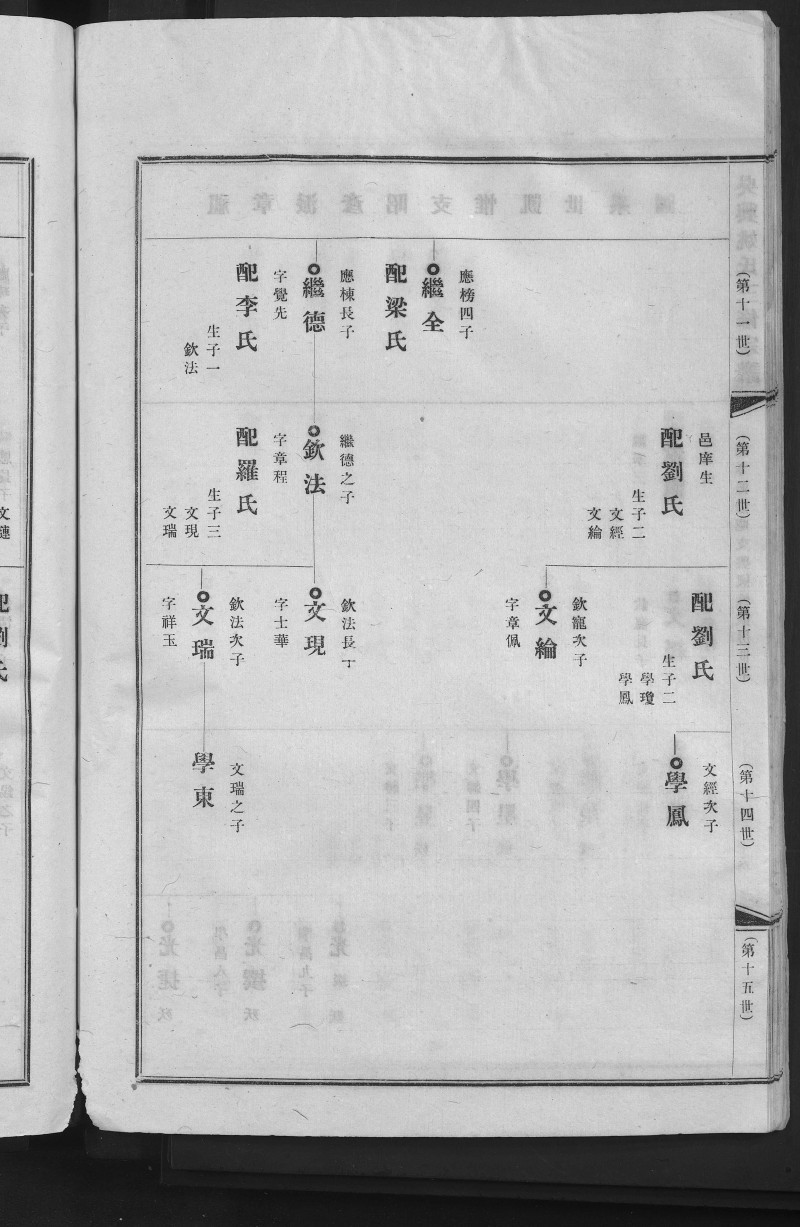 （第十一世）
應榜四子
繼全
配梁氏
應棟長子
繼德
字覺先
配李氏
生子一
欽法
（第十二世）
邑庠生
配劉氏
生子二
文經
文綸
繼德之子
欽法
字章程
配羅氏
生子三
文現
文瑞
（第十三世）
配劉氏
生子二
學瓊
學鳳
欽寵次子
文綸
字章佩
欽法長
文現
字士華
欽法次子
文瑞
字祥玉
（第十四世）
文經次子
學鳳
文瑞之子
學東
（第十五世）
配劉氏